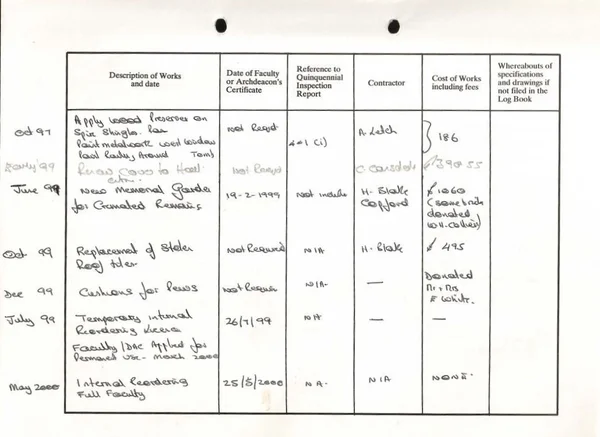 Description of Works
and date
Date of Faculty
or Archdeacon's
Certificate
Reference to
Quinquennial
Inspection
Report
Contractor
Cost of Works
including fees
Whereabouts of
specifications
and drawings if
not filed in the
Log Book
Oct 97
Apply Wood Preserver on
Spire Shingles.
Paint metalwork West Window
Railing Around Tomb
Not Reqd
4-1 (i)
A. Letch
186
Early '99
to
Not Reqd
C.
June 99
New Memorial Garden
for Cremated Remains
19-2-1999
Not
H. Blake
Copford
£1060
(some bricks
donated
Oct 99
Replacement of Stolen
Roof tiles
Not Required
N/A
H. Blake
£ 495
Dec 99
Cushions for Pews
Not Require
N/A
—
Donated
Mr & Mrs
E White.
July 99
Temporary internal
Reordering
26/7/99
N/A
—
—
Faculty/DAC Applied for
Permanent use - March 2000
May 2000
Internal Reordering
Full Faculty
25/5/2000
N A.
N/A
NONE